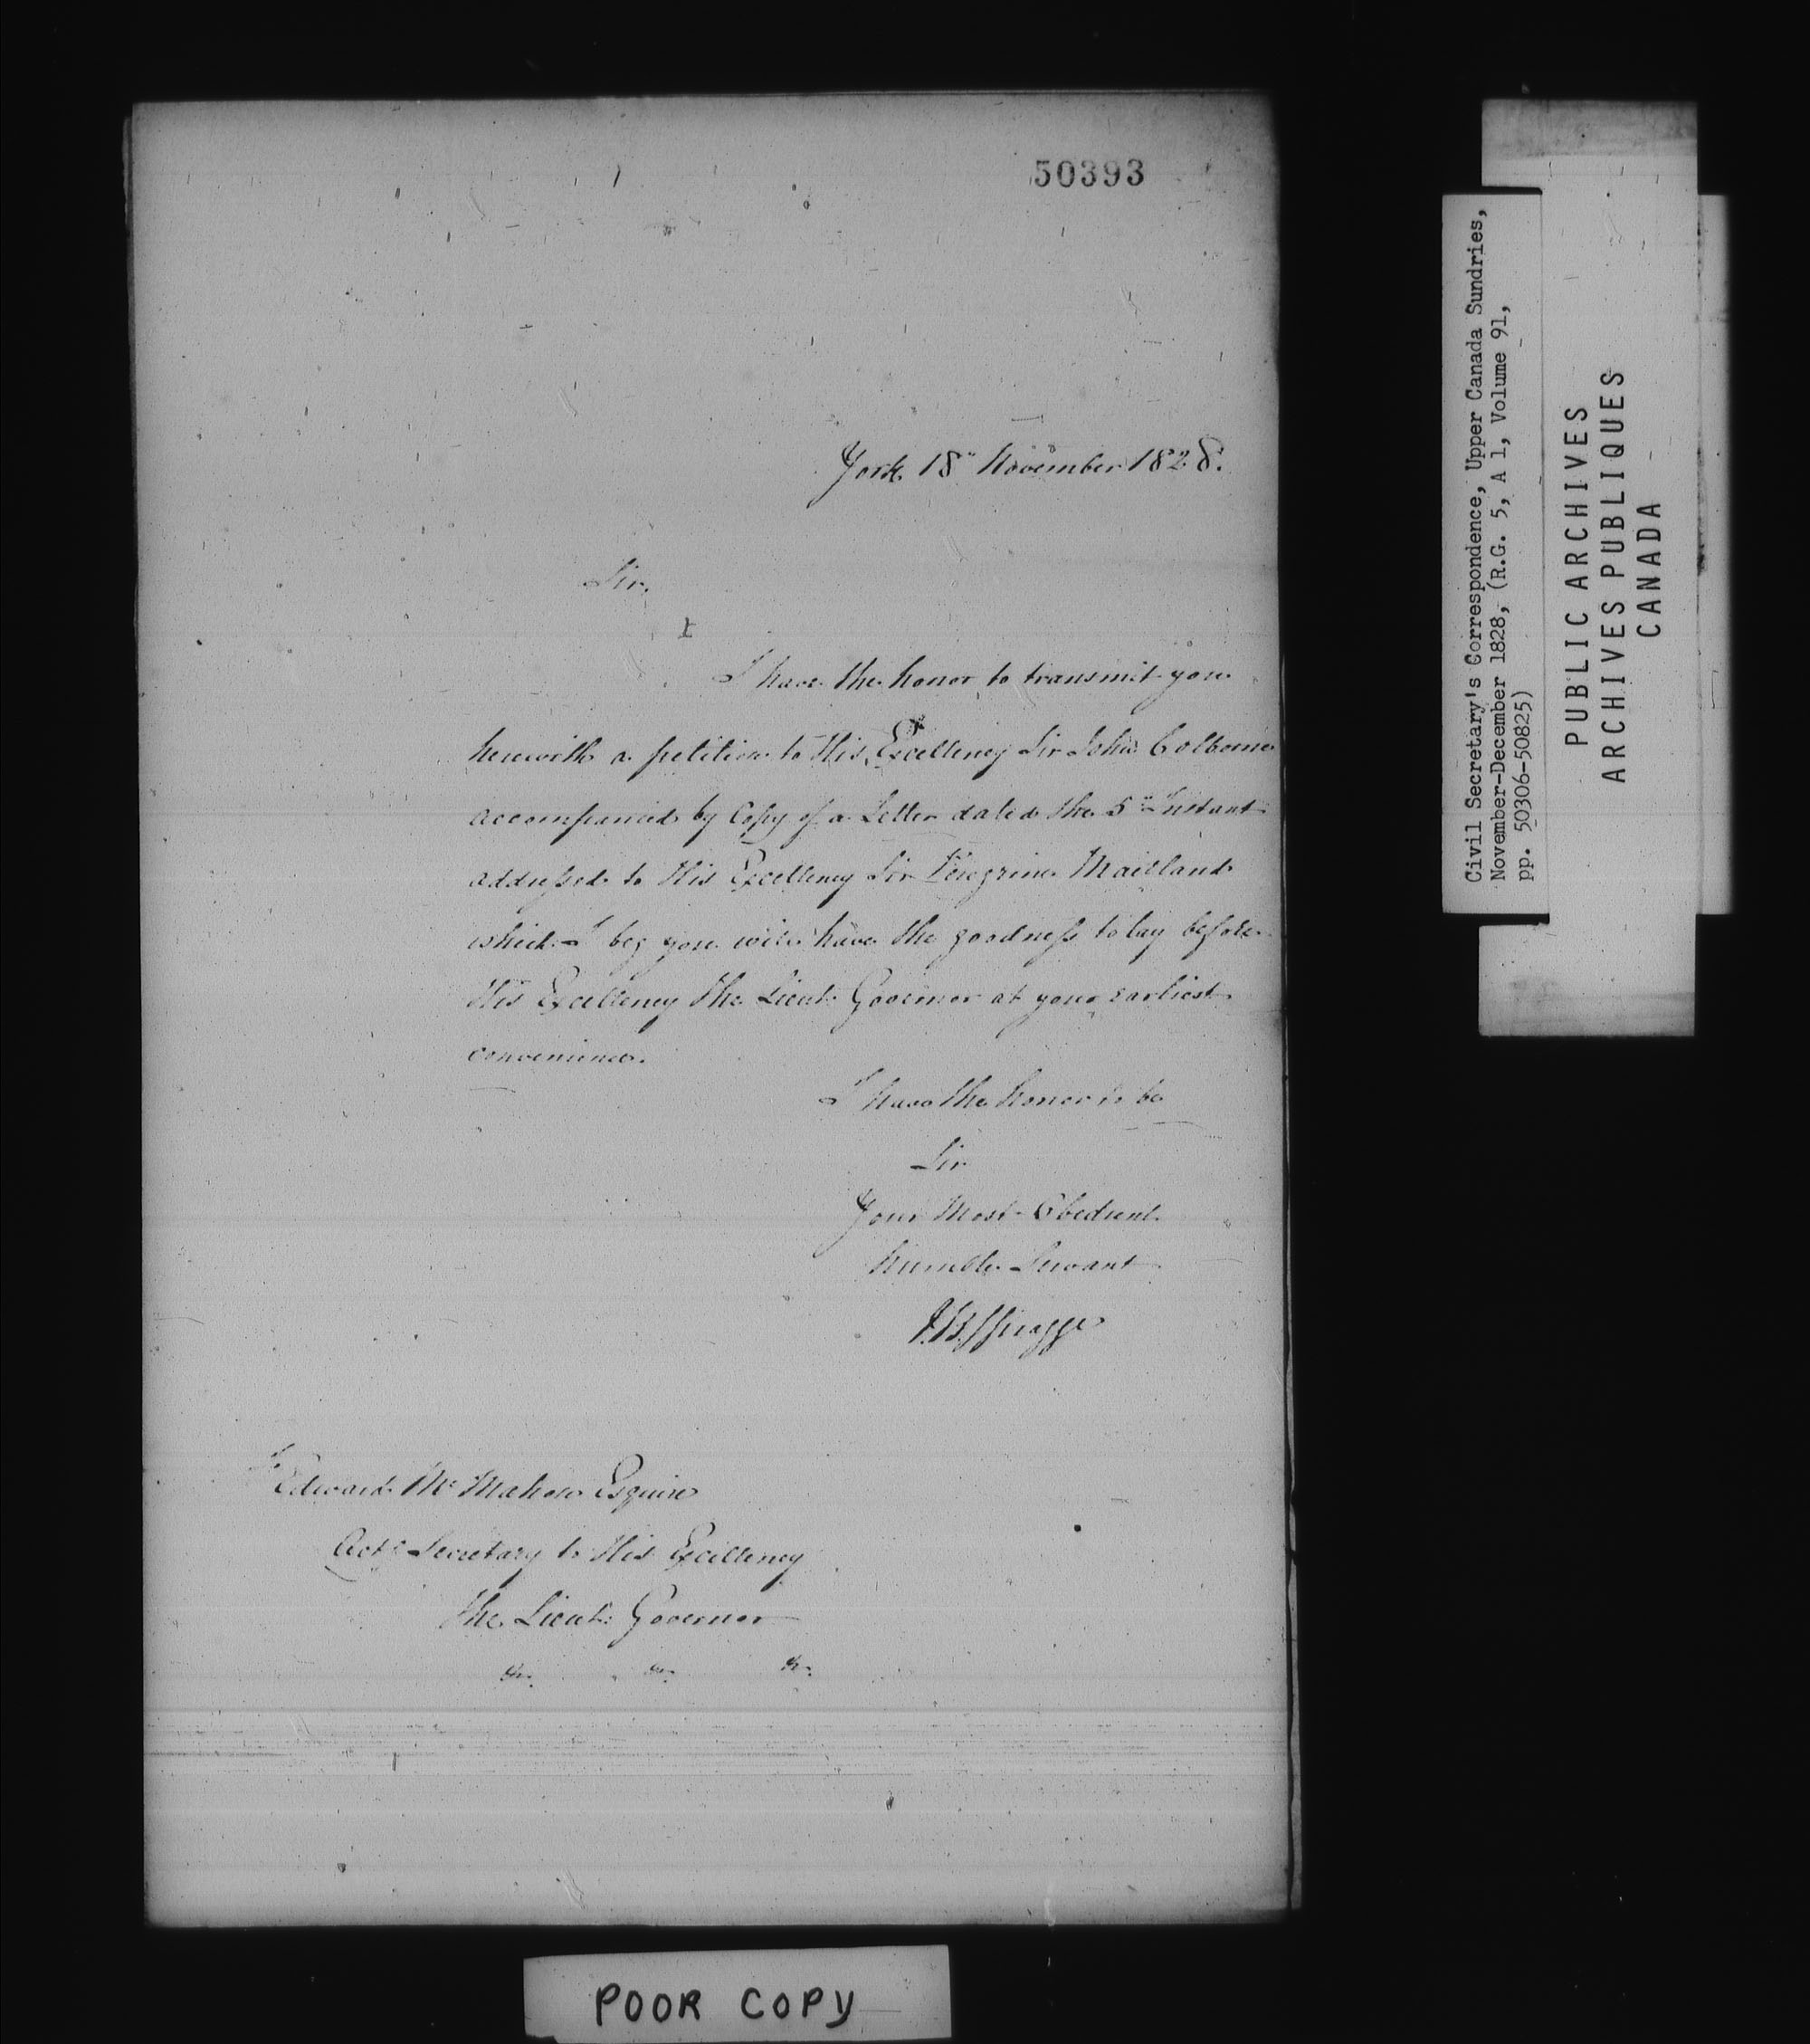 50393
York 18" November 1828.
Sir,
I have the honor to transmit you
herewith a petition to His Excellency Sir John Colborne
accompanied by Copy of a Letter dated the 5" Instant
addressed to His Excellency Sir Peregrine Maitland
which I beg you will have the goodness to lay before
His Excellency the Lieut: Governor at your earliest
convenience.
I have the honor to be
Sir
Your Most Obedient
humble Servant
J.B. Spragge
To
Edward Mc Mahon Esquire
Actg Secretary to His Excellency
the Lieut: Governor
&c. &c. &c.
Civil Secretary's Correspondence, Upper Canada Sundries,
November-December 1828, (R.G. 5, A 1, Volume 91,
pp. 50306-50825)
PUBLIC ARCHIVES
ARCHIVES PUBLIQUES
CANADA
POOR COPY